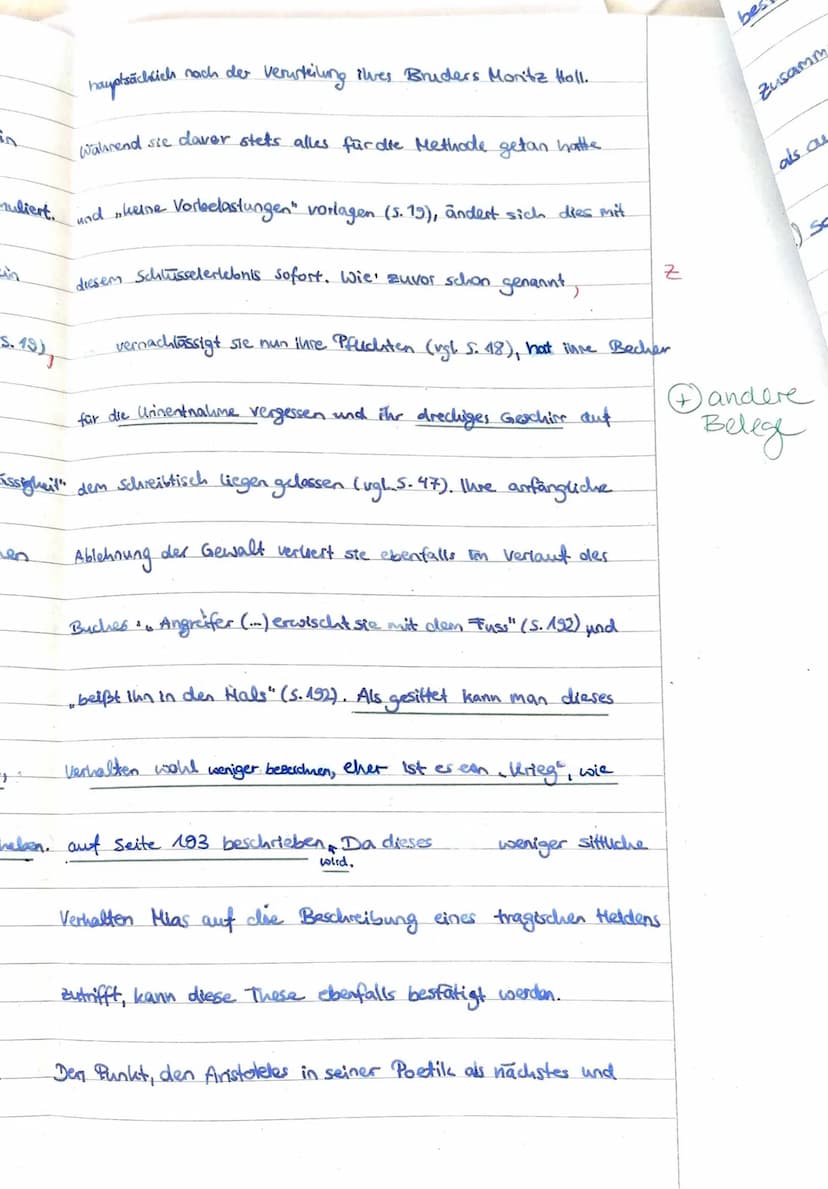 hauptsächlich nach der Verurteilung ihres Bruders Moritz Holl.
Während sie davor stets alles für die Methode getan hatte
und „keine Vorbelastungen" vorlagen (S. 19), ändert sich dies mit
diesem Schlüsselerlebnis sofort. Wie zuvor schon genannt,
Z
vernachlässigt sie nun ihre Pflichten (vgl. S. 18), hat ihre Becher
für die Urinentnahme vergessen und ihr dreckiges Geschirr auf
+ andere
Belege
dem Schreibtisch liegen gelassen (vgl. S. 47). Ihre anfängliche
Ablehnung der Gewalt verliert sie ebenfalls im Verlauf des
Buches: „Angreifer (...) erwischt sie mit dem Fuss" (S. 192) und
„beißt ihn in den Hals" (S. 192). Als gesittet kann man dieses
Verhalten wohl weniger bezeichnen, eher ist es ein „Krieg", wie
auf Seite 193 beschrieben wird. Da dieses weniger sittliche
Verhalten Mias auf die Beschreibung eines tragischen Heldens
zutrifft, kann diese These ebenfalls bestätigt werden.
Den Punkt, den Aristoteles in seiner Poetik als nächstes und
in
muliert.
ein
S. 19),
ässigkeit"
en
heben.
bes
zusamm
als au
so